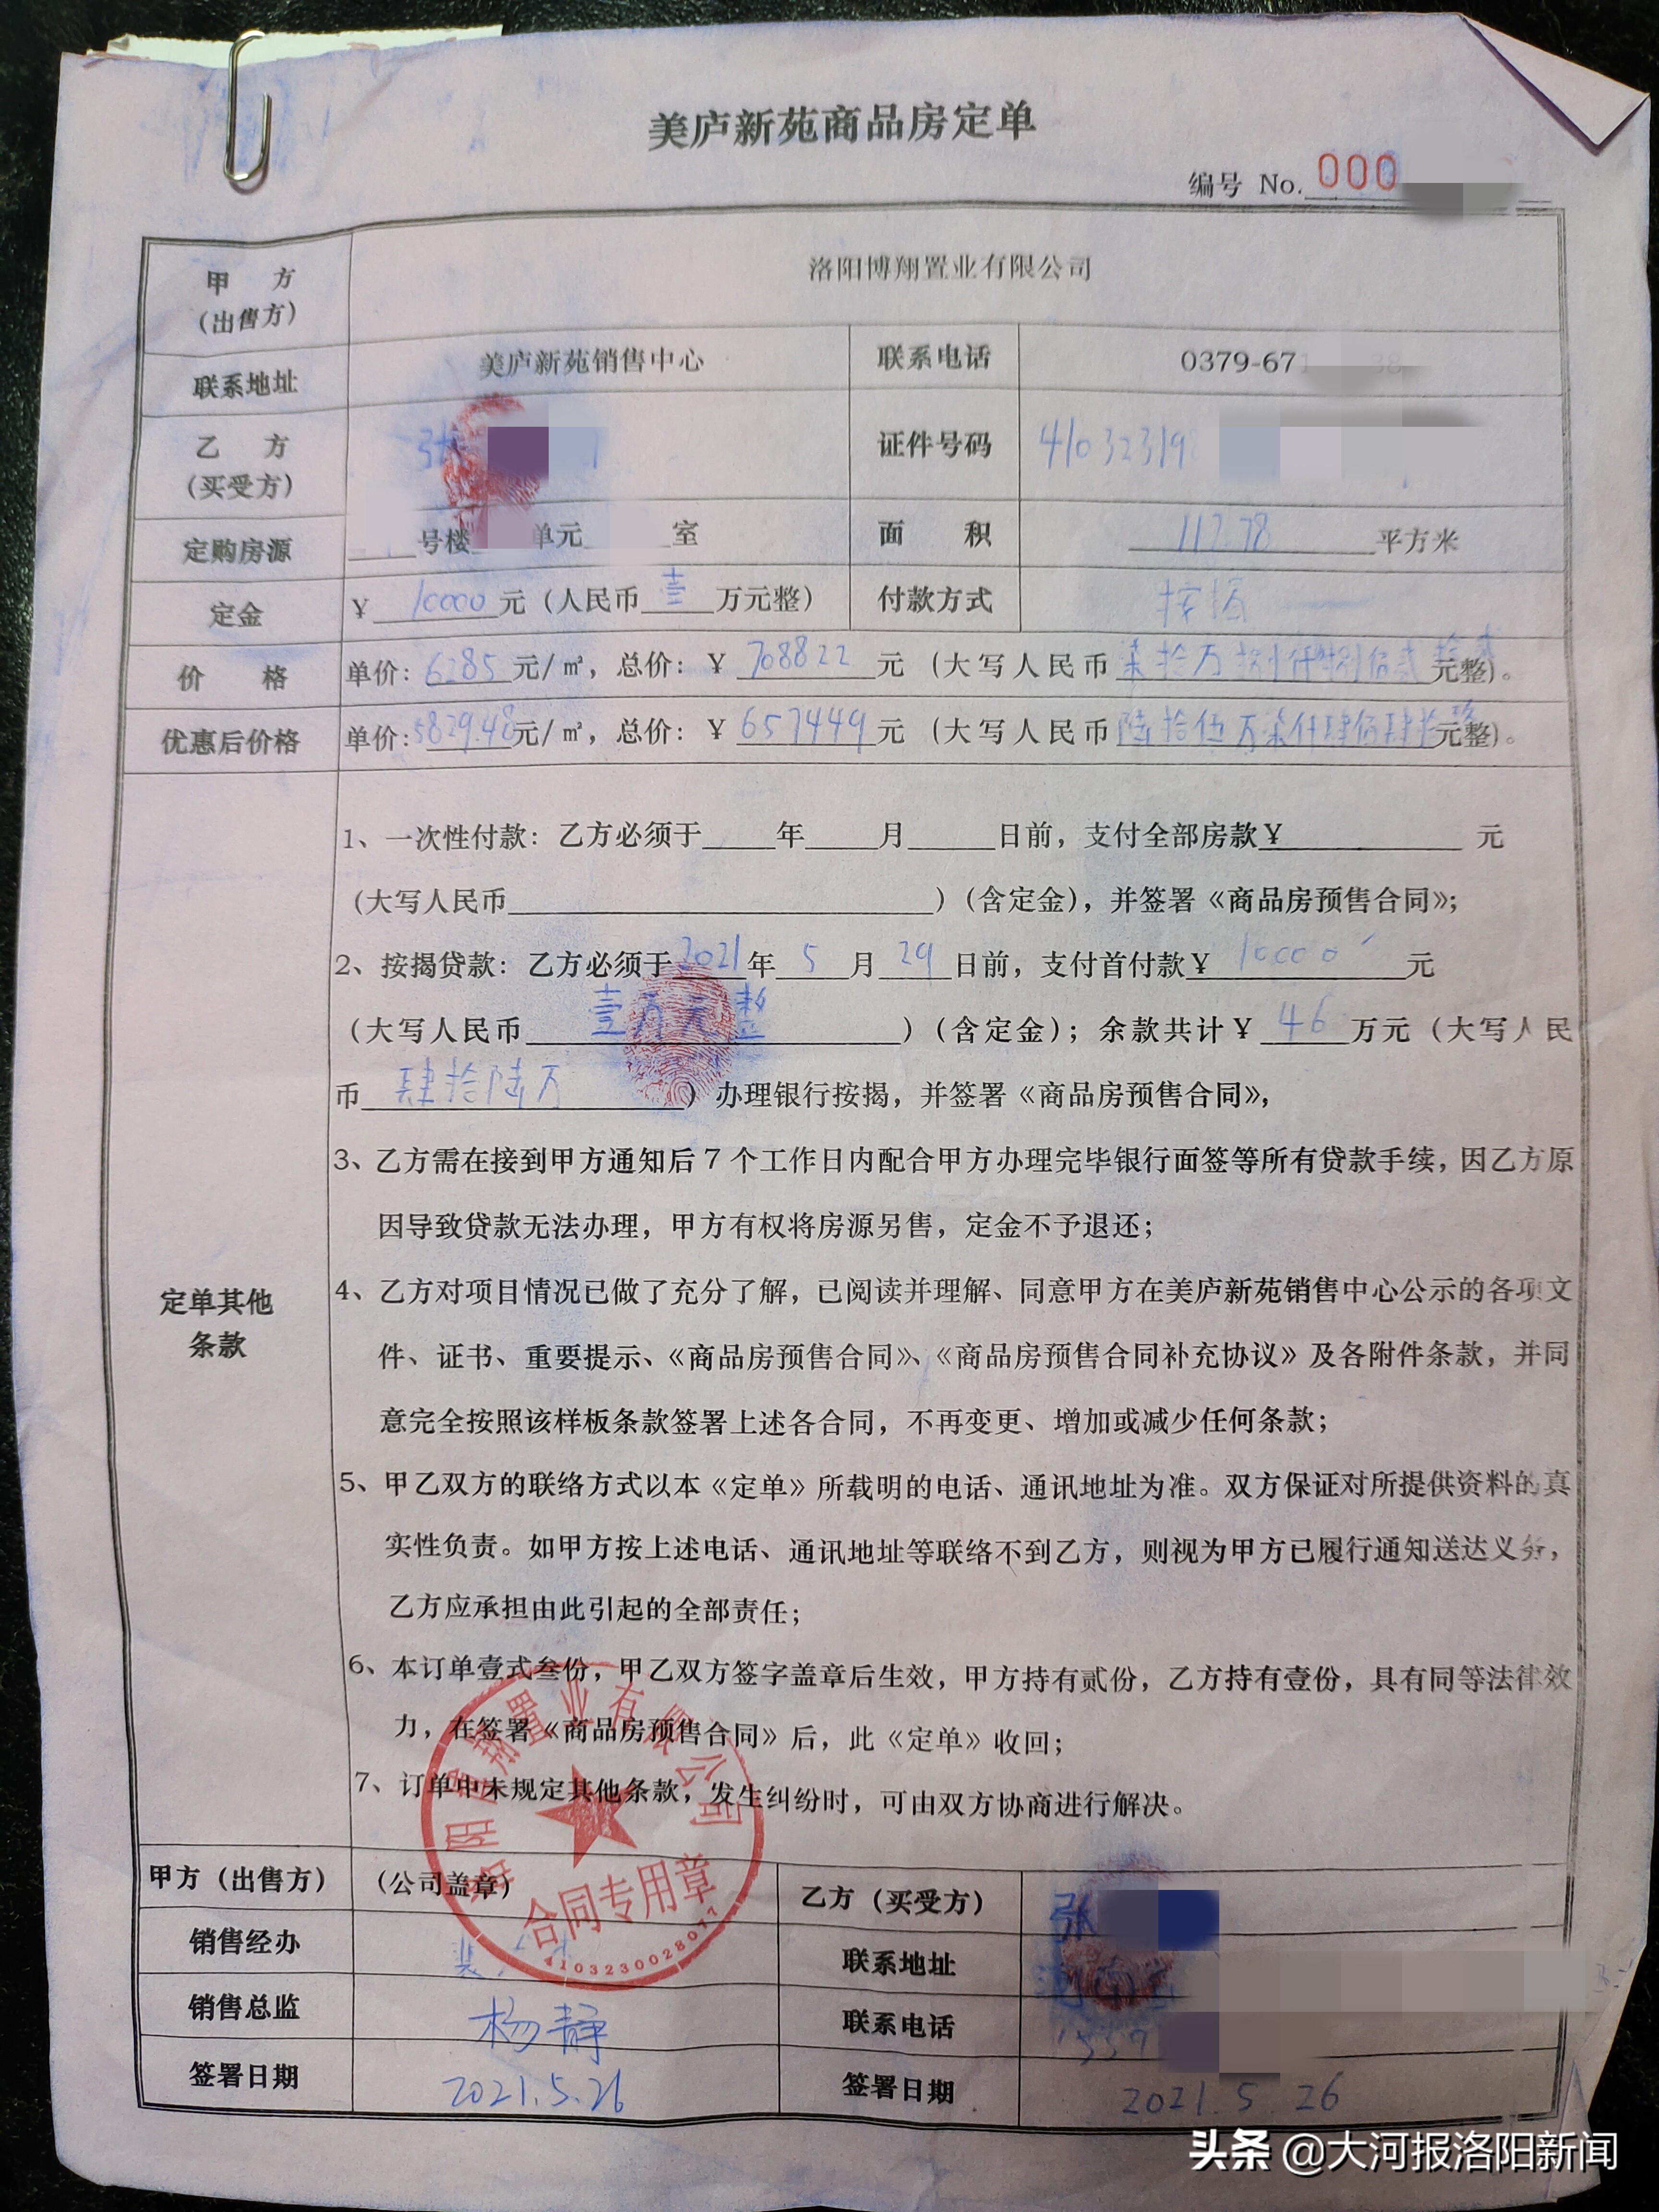 美庐新苑商品房定单
编号 No. 000
甲 方 (出售方) 洛阳博翔置业有限公司
联系地址 美庐新苑销售中心 联系电话 0379-67 38
乙 方 (买受方) 张 证件号码 41032319
定购房源 号楼 单元 室 面 积 112.78 平方米
定金 ¥ 10000 元 (人民币 壹 万元整) 付款方式 按揭
价 格 单价: 6285 元/㎡, 总价: ¥ 708822 元 (大写人民币 柒拾万捌仟捌佰贰拾贰 元整)。
优惠后价格 单价: 5829.48 元/㎡, 总价: ¥ 657449 元 (大写人民币 陆拾伍万柒仟肆佰肆拾 元整)。
定单其他条款
1、一次性付款: 乙方必须于 年 月 日前, 支付全部房款¥ 元
(大写人民币 ) (含定金), 并签署《商品房预售合同》;
2、按揭贷款: 乙方必须于 2021 年 5 月 29 日前, 支付首付款¥ 10000 元
(大写人民币 壹万元整 ) (含定金); 余款共计¥ 46 万元 (大写人民
币 肆拾陆万 ) 办理银行按揭, 并签署《商品房预售合同》,
3、乙方需在接到甲方通知后7个工作日内配合甲方办理完毕银行面签等所有贷款手续, 因乙方原
因导致贷款无法办理, 甲方有权将房源另售, 定金不予退还;
4、乙方对项目情况已做了充分了解, 已阅读并理解、同意甲方在美庐新苑销售中心公示的各项文
件、证书、重要提示、《商品房预售合同》、《商品房预售合同补充协议》及各附件条款, 并同
意完全按照该样板条款签署上述各合同, 不再变更、增加或减少任何条款;
5、甲乙双方的联络方式以本《定单》所载明的电话、通讯地址为准。双方保证对所提供资料的真
实性负责。如甲方按上述电话、通讯地址等联络不到乙方, 则视为甲方已履行通知送达义务,
乙方应承担由此引起的全部责任;
6、本订单壹式叁份, 甲乙双方签字盖章后生效, 甲方持有贰份, 乙方持有壹份, 具有同等法律效
力, 在签署《商品房预售合同》后, 此《定单》收回;
7、订单中未规定其他条款, 发生纠纷时, 可由双方协商进行解决。
洛阳博翔置业有限公司
合同专用章
4103230028077
甲方 (出售方) (公司盖章) 乙方 (买受方) 张
销售经办 联系地址
销售总监 杨静 联系电话
签署日期 2021.5.26 签署日期 2021.5.26
头条 @大河报洛阳新闻